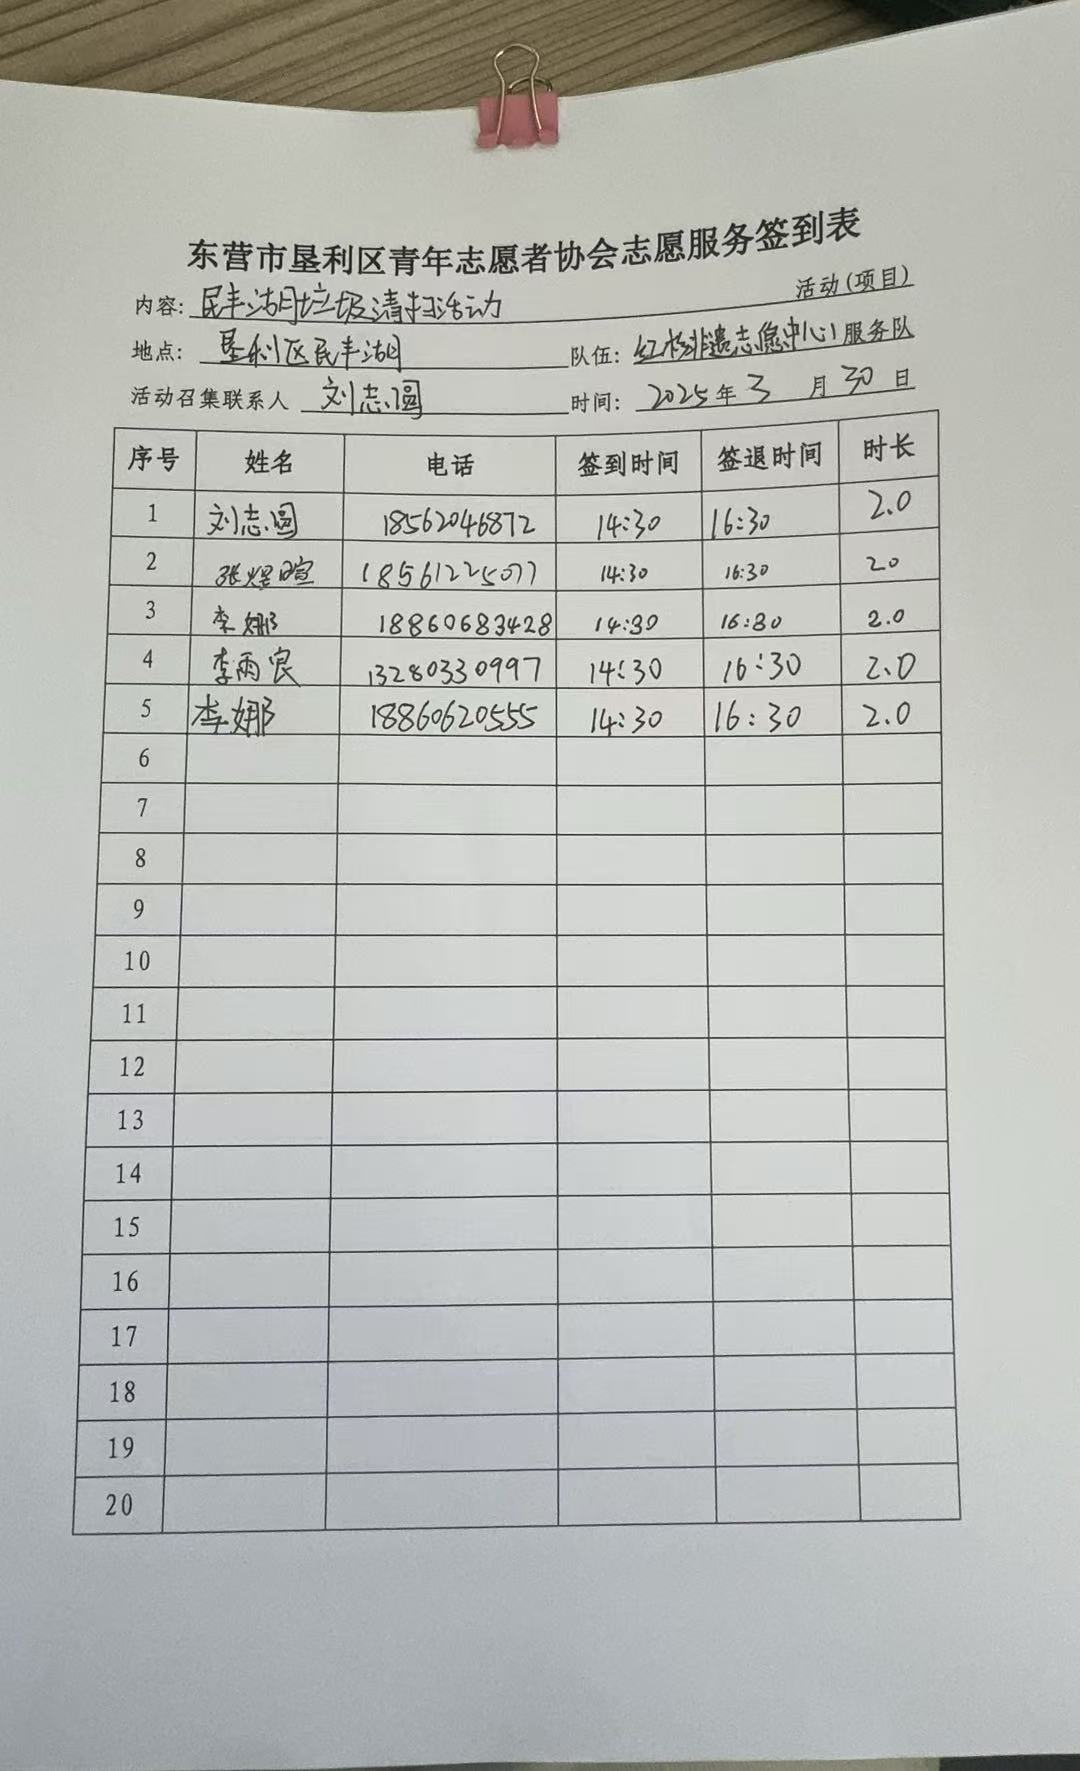 东营市垦利区青年志愿者协会志愿服务签到表
内容: 民丰湖垃圾清扫活动 活动(项目)
地点: 垦利区民丰湖 队伍: 红杉非遗志愿中心 服务队
活动召集联系人 刘志圆 时间: 2025年 3 月 30 日
序号 姓名 电话 签到时间 签退时间 时长
1 刘志圆 18562046872 14:30 16:30 2.0
2 张煜暄 18561225077 14:30 16:30 2.0
3 李娜 18860683428 14:30 16:30 2.0
4 李雨宸 13280330997 14:30 16:30 2.0
5 李娜 18860620555 14:30 16:30 2.0
6
7
8
9
10
11
12
13
14
15
16
17
18
19
20